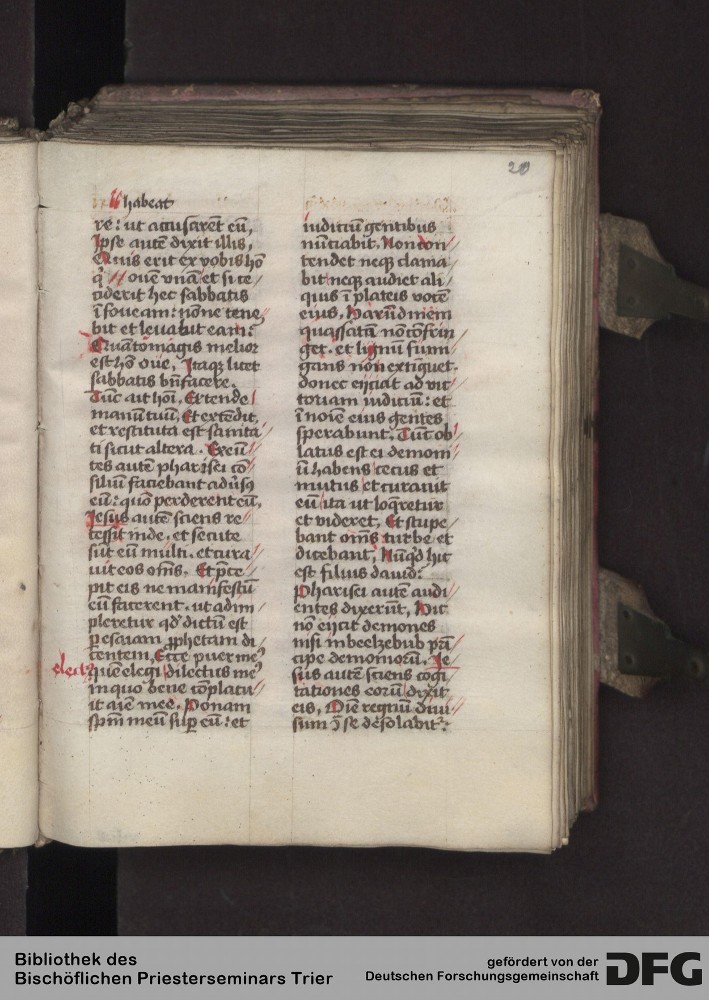 20
habeat
re: ut accusarēt eū,
Ipse autē dixit illis,
Quis erit ex vobis hō
qͥ ouē vnā et si ce
ciderit hec sabbatis
ī foueam: nōne tene
bit et leuabit eam?
Quāto magis melior
est hō oue, Itaqꝫ licet
sabbatis bn̄facere.
Tūc ait hoī. Extende
manū tuū, Et extēdit,
et restituta est sanita
ti sicut altera. Exeū
tes autē pharisei cō
siliū faciebant aduͥsꝯ
eū: quō perderent eū,
Jesus autē sciens re
cessit inde. et secute
sūt eū multi. et cura
uit eos om̄s. Et p̄ce
pit eis ne manifestū
eū facerent. ut adim
pleretur qd̓ dictū est
ꝑ esaiam ꝓphetam di
centem, Ecce puer meꝯ
electꝯ
quē elegi dilectus meꝯ
in quo bene cōplacu
it aīe mee. Ponam
sp̄m meū suꝑ eū: et
iudiciū gentibus
nūciabit. Non con
tendet neqꝫ clama
bit neqꝫ audiet ali
quis ī plateis vocē
eius, Harūdinem
quassatā nō cōfrin
get. et lignū fumi
gans non extīguet.
donec eijciat ad vic
toriam iudiciū: et
ī noīe eius gentes
sperabunt. Tūc ob
latus est ei demoni
ū habens cecus et
mutus et curauit
eū ita ut loq̄retur
et videret, Et stupe
bant om̄s turbe et
dicebant, Nūqd̓ hic
est filius dauid?
Pharisei autē audi
entes dixerūt, Hic
nō eijcit demones
nisi in beelzebub prī
cipe demoniorū. Je
sus autē sciens cogi
tationes eorū dixit
eis, Oīe regnū diui
sum ꝯ̄ se desolabit̉:
Bibliothek des
Bischöflichen Priesterseminars Trier
gefördert von der
Deutschen Forschungsgemeinschaft
DFG